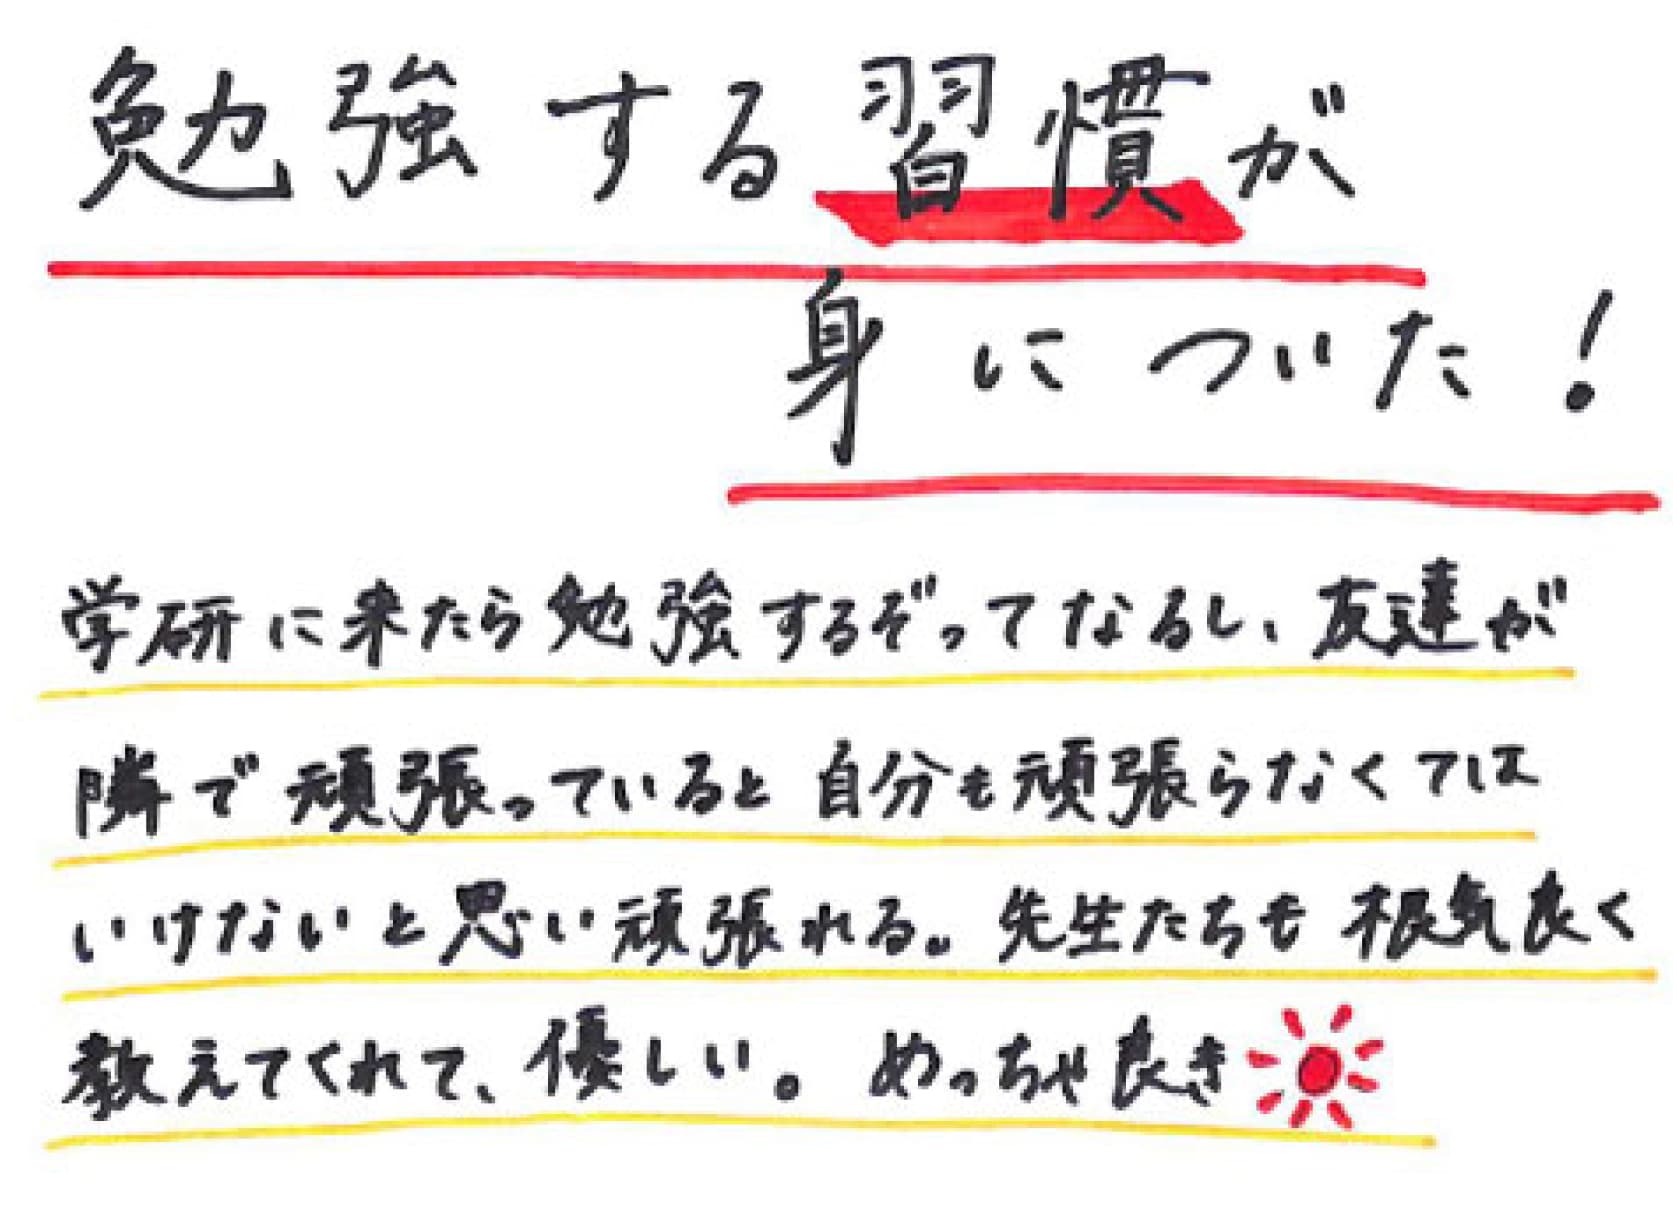 勉強する習慣が
身についた!
学研に来たら勉強するぞってなるし、友達が
隣で頑張っていると自分も頑張らなくては
いけないと思い頑張れる。先生たちも根気良く
教えてくれて、優しい。めっちゃ良き